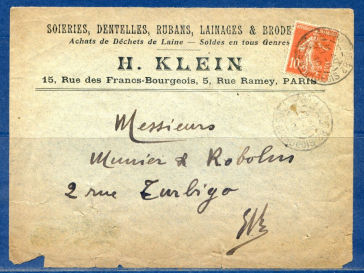 SOIERIES, DENTELLES, RUBANS, LAINAGES & BRODE
Achats de Déchets de Laine — Soldes en tous Genres
H. KLEIN
15, Rue des Francs-Bourgeois, 5, Rue Ramey, PARIS
10
Messieurs
Munier & Robolin
2 rue Turbigo